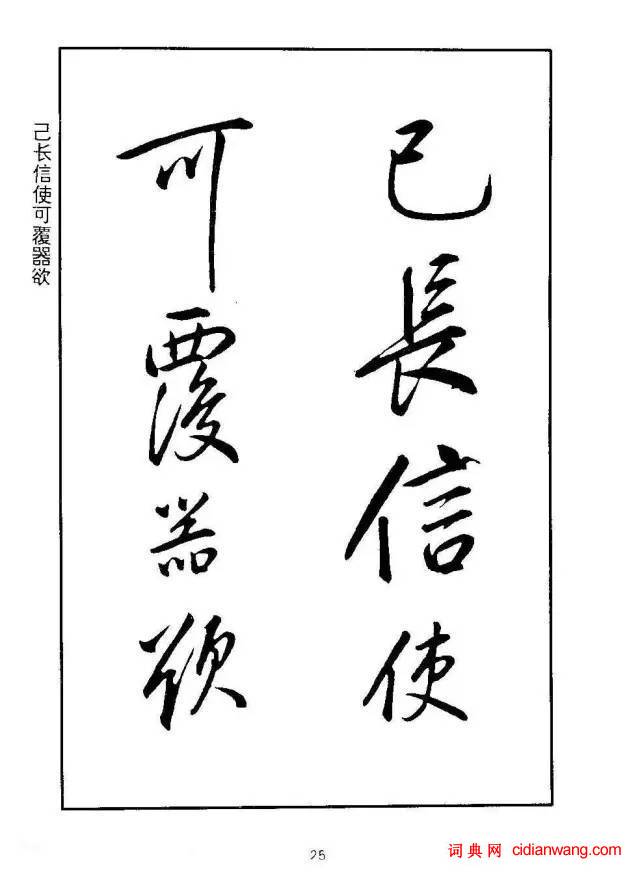 己長信使
可覆器欲
己长信使可覆器欲
25
词典网 cidianwang.com